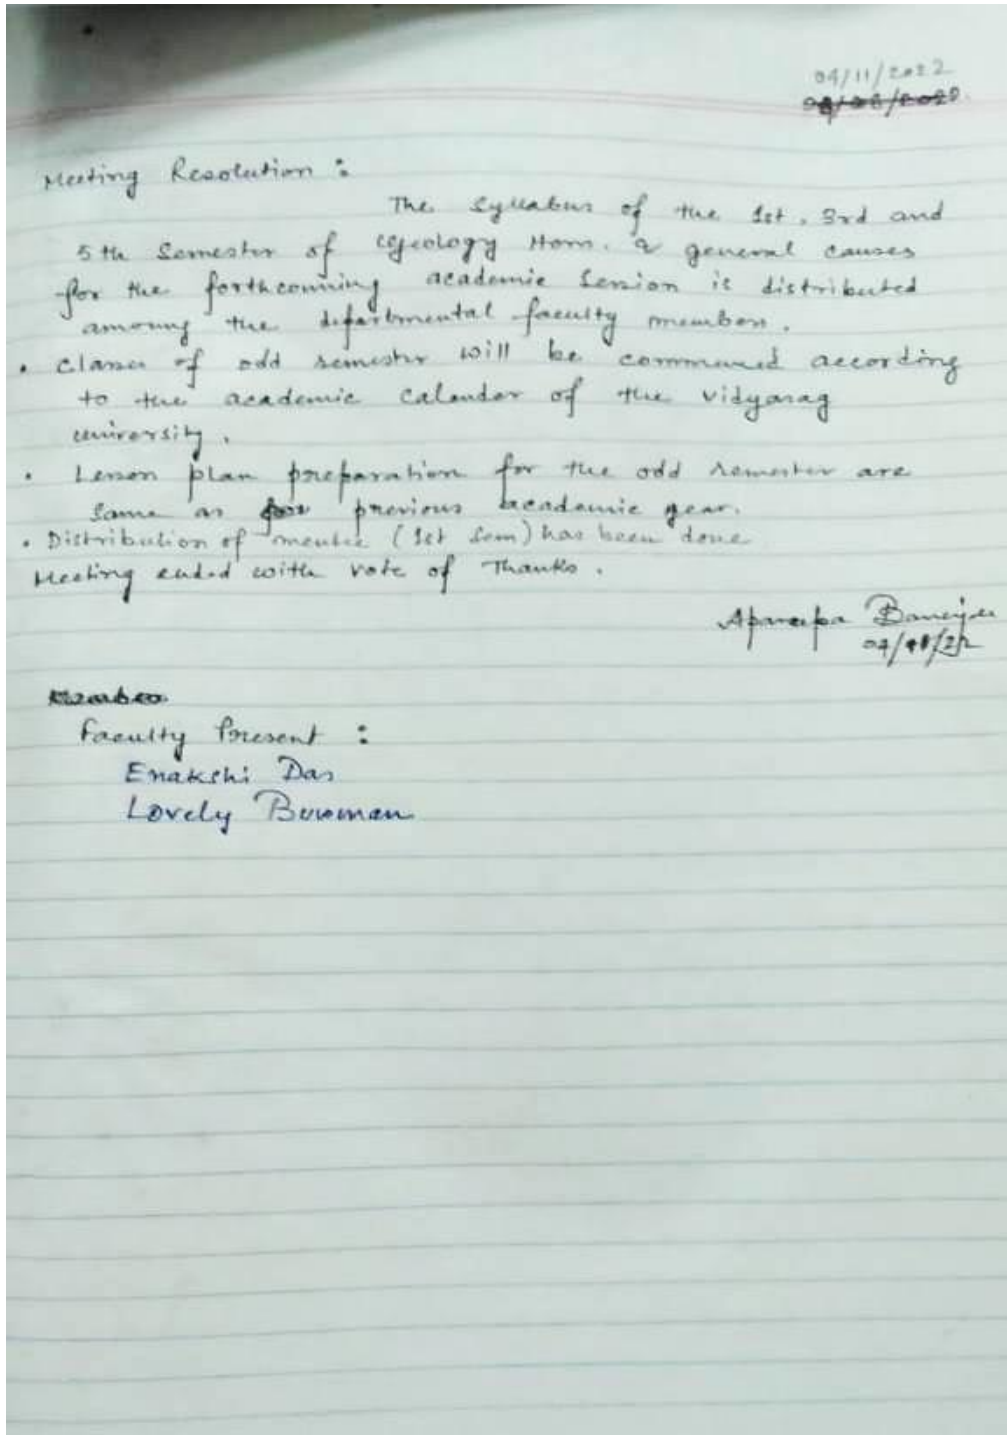 04/11/2022
Meeting Resolution :
The Syllabus of the 1st, 3rd and
5th Semester of Geology Hons. & general causes
for the forthcomming academic Session is distributed
among the departmental faculty members.
• Classes of odd semester will be commenced according
to the academic Calander of the Vidyasag
university.
• Lesson plan preparation for the odd semester are
same as previous academic year.
• Distribution of mentee (1st Sem) has been done
Meeting ended with vote of Thanks.
Banerjee
Faculty Present :
Enakshi Das
Lovely Burman